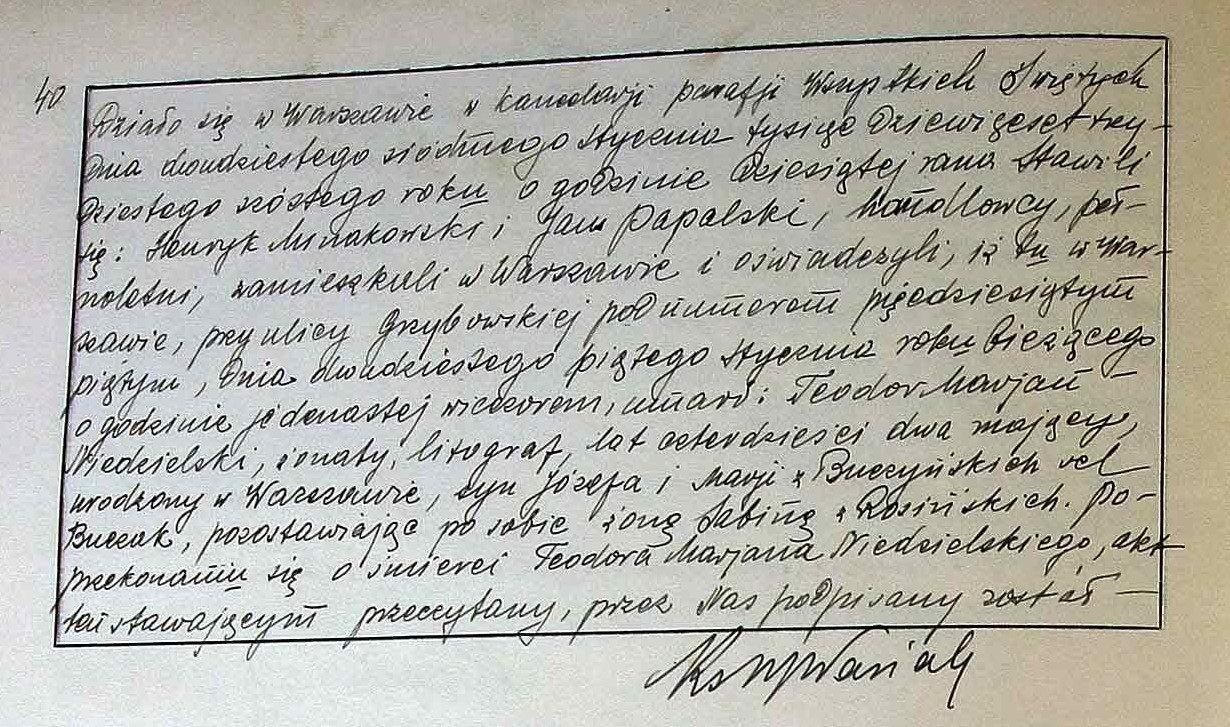 40
Działo się w Warszawie w kancelarji parafji Wszystkich Świętych
dnia dwudziestego siódmego stycznia tysiąc dziewięćset trzy-
dziestego szóstego roku o godzinie dziesiątej rano. Stawili
się: Henryk Minakowski i Jan Papalski, handlowcy, peł-
noletni, zamieszkali w Warszawie i oświadczyli, iż tu w War-
szawie, przy ulicy Grzybowskiej pod numerem pięćdziesiątym
piątym, dnia dwudziestego piątego stycznia roku bieżącego
o godzinie jedenastej wieczorem, umarł: Teodor Marjan –
Niedzielski, żonaty, litograf, lat czterdzieści dwa mający,
urodzony w Warszawie, syn Józefa i Marji z Buczyńskich vel
Buczak, pozostawiając po sobie żonę Sabinę z Rosińskich. Po-
przekonaniu się o śmierci Teodora Marjana Niedzielskiego, akt
ten stawającym przeczytany, przez Nas podpisany został –